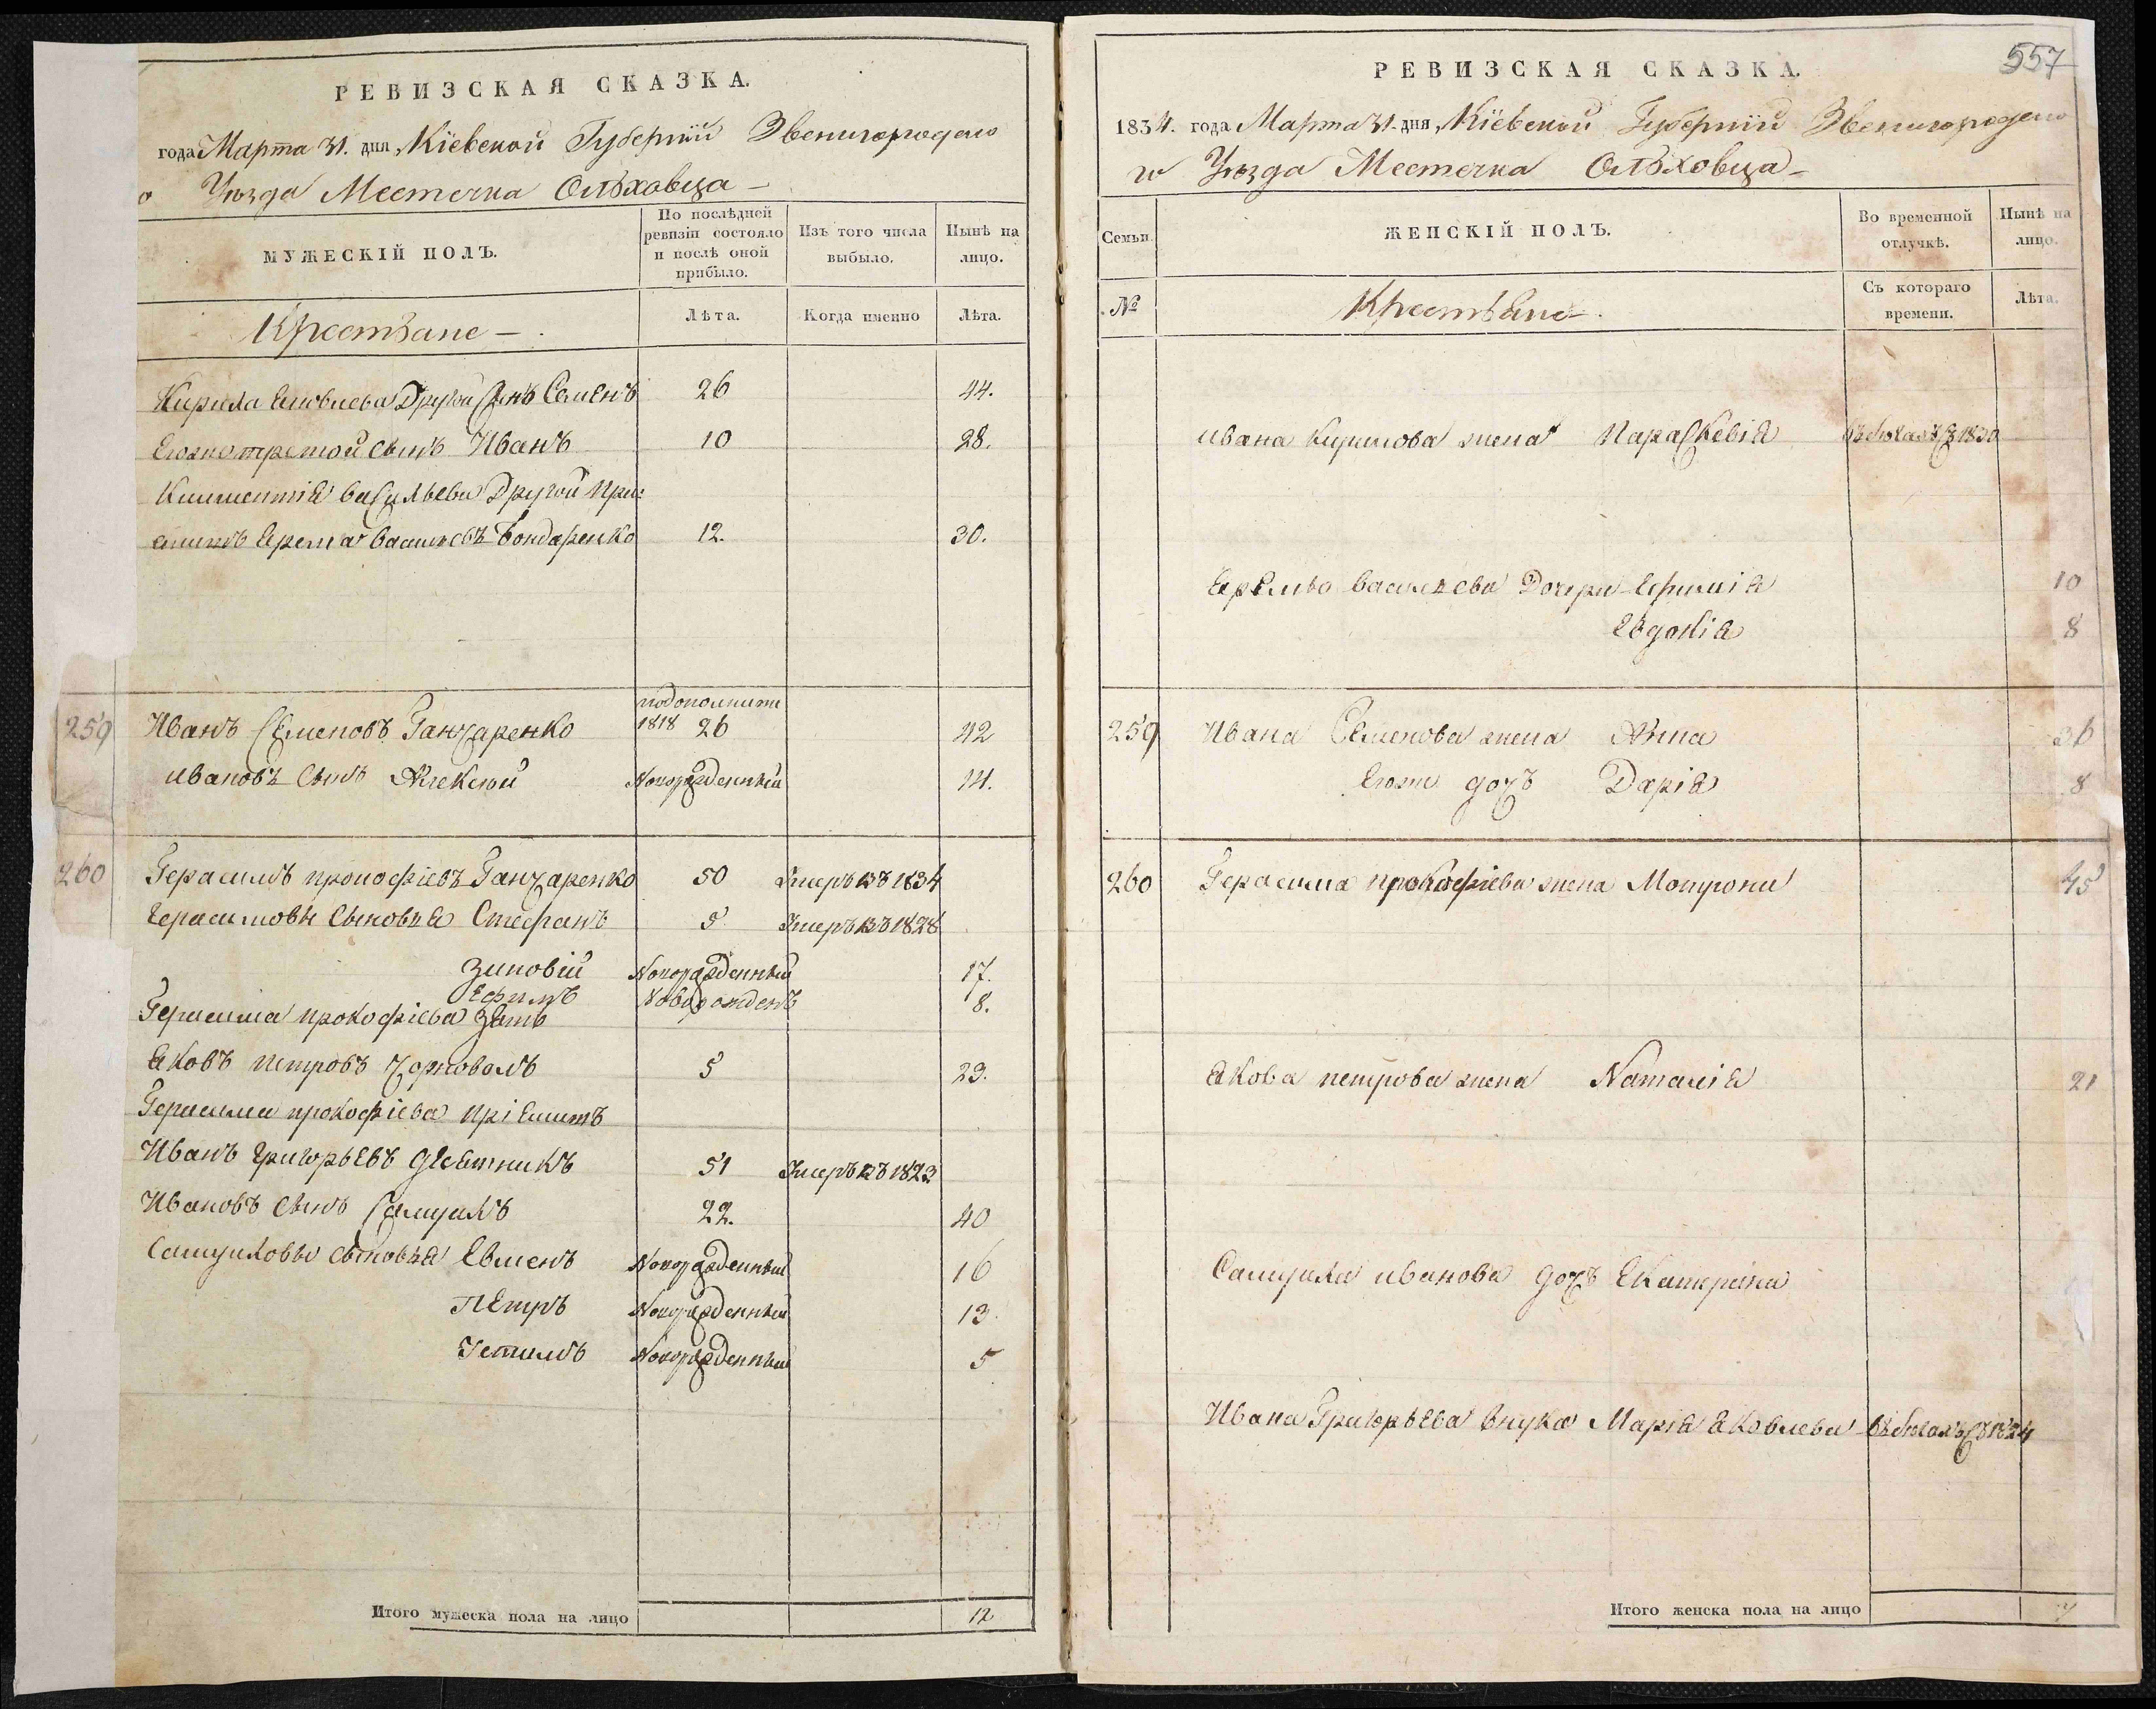 РЕВИЗСКАЯ СКАЗКА.
года Марта 31. дня Кіевской Губерніи Звенигородско
о Уѣзда Местечка Ольховца —
МУЖЕСКІЙ ПОЛЪ.
По послѣдней ревизіи состояло и послѣ оной прибыло.
Изъ того числа выбыло.
Нынѣ на лицо.
Крестьяне —
Лѣта.
Когда именно
Лѣта.
Кирила Яковлева Другой Сынъ Семенъ 26 44.
Егоже третой сынъ Иванъ 10 28.
Климентія Васильева Другой При:
емышъ Ерема Васильевъ Бондаренко 12. 30.
подополните
259 Иванъ Семеновъ Ганчаренко 1818 26 42
Ивановъ Сынъ Алексей Новорожденный 14.
260 Герасимъ прокофіевъ Ганчаренко 50 Умеръ въ 1834
Герасимовы Сыновья Стефанъ 5 Умеръ въ 1828
Зиновій Новорожденный 17.
Ефимъ Новорожденъ 8.
Герасима прокофіева Зять
Яковъ петровъ Чорноволъ 5 23.
Герасима прокофіева пріемышъ
Иванъ Григорьевъ 51 Умеръ въ 1823
Ивановъ Сынъ Самуилъ 22. 40
Самуиловы сыновья Евменъ Новорожденный 16
Петръ Новорожденный 13.
Устимъ Новорожденный 5
Итого мужеска пола на лицо 12
557
РЕВИЗСКАЯ СКАЗКА.
1834. года Марта 31. дня Кіевской Губерніи Звенигородско
го Уѣзда Местечка Ольховца —
Семьи.
ЖЕНСКІЙ ПОЛЪ.
Во временной отлучкѣ.
Нынѣ на лицо.
№
Крестьяне —
Съ котораго времени.
Лѣта.
Ивана Кирилова жена Параскевія въ бегахъ съ 1830
Еремы Васильева Дочери Ефимія 10
Евдокія 8
259 Ивана Семенова жена Анна 36
Егоже дочь Дарія 8
260 Герасима прокофіева жена Мотрона 45
Якова петрова жена Наталія 21
Самуила иванова дочь Екатерина
Ивана Григорьева внука Марія Яковлева въ бегахъ съ 1824
Итого женска пола на лицо 7